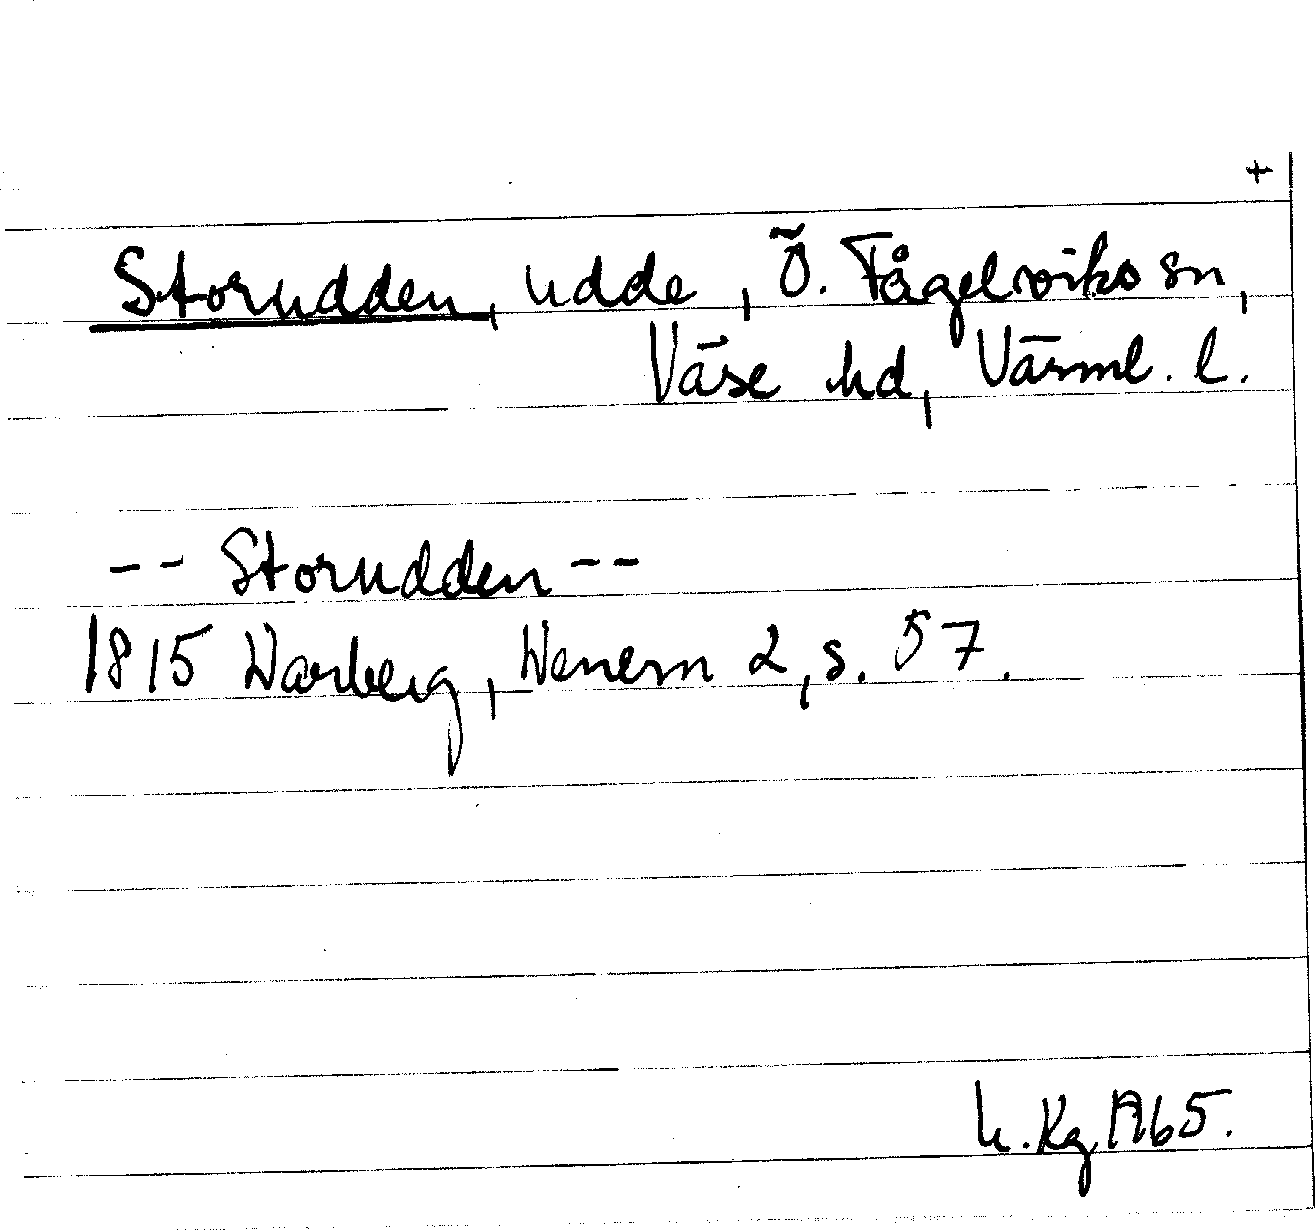 +
Storudden, udde, Ö. Fågelviks sn,
Väse hd, Värml. l.
-- Storudden --
1815 Warberg, Wenern 2, s. 57.
h. Kg 1965.